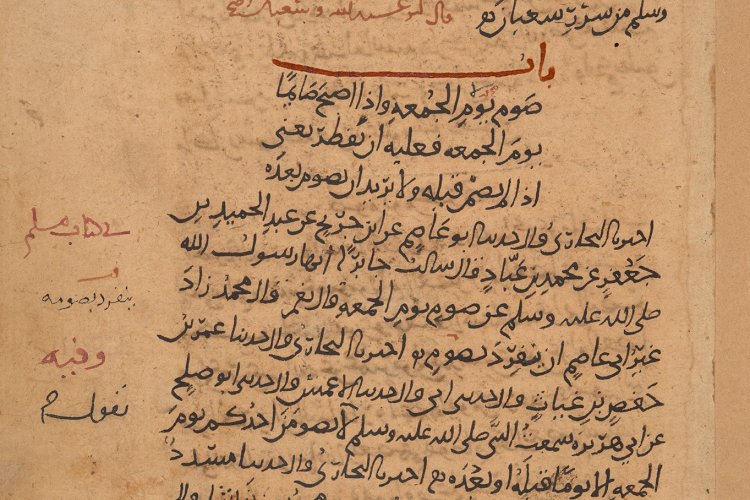 وسلم من سرر شعبان قال ابو عبد الله وشعبان اصح
باب
صوم يوم الجمعه واذا اصبح صائما
يوم الجمعه فعليه ان يفطر يعني
اذا لم يصم قبله ولا يريد ان يصوم بعده
اخبرنا البخاري قال حدثنا ابو عاصم عن ابن جريج عن عبد الحميد بن
جعفر عن محمد بن عباد قال سالت جابرا أنها رسول الله
صلى الله عليه وسلم عن صوم يوم الجمعه قال نعم قال محمد زاد
غير ابي عاصم ان ينفرد بصومه اخبرنا البخاري قال حدثنا عمر بن
حفص بن غياث قال حدثني ابي قال حدثنا الاعمش قال حدثني ابو صلح
عن ابي هريره سمعت النبي صلى الله عليه وسلم لا يصومن احدكم يوم
الجمعه الا يوما قبله او بعده اخبرنا البخاري قال حدثنا مسدد
في كتاب مسلم
ينفرد بصومه
وفيه
يقول